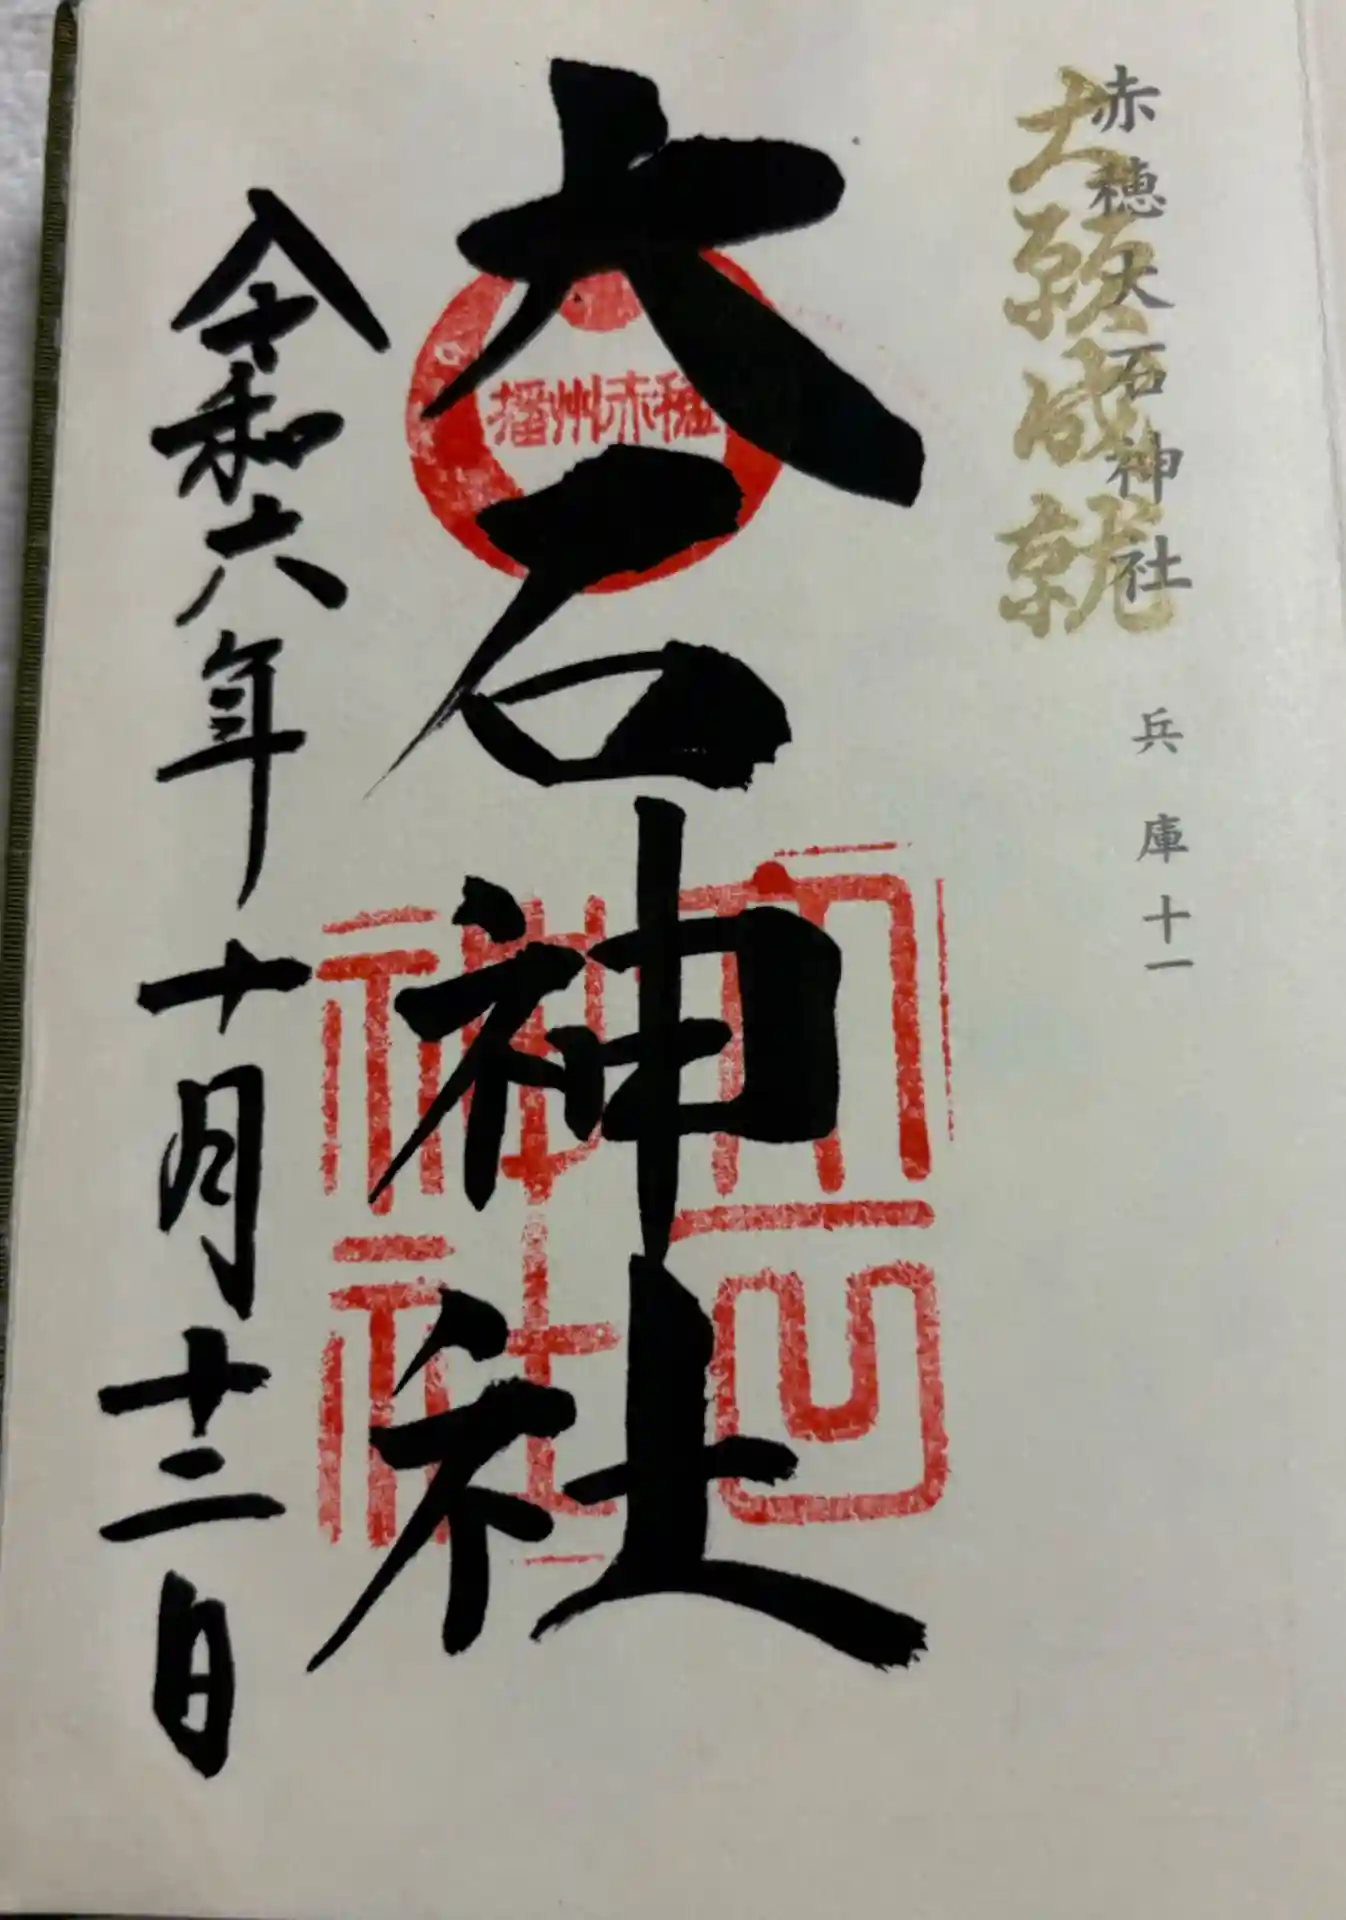 赤穂大石神社 兵庫十一
大願成就
大石神社
播州赤穂
大石神社
令和六年十月十二日